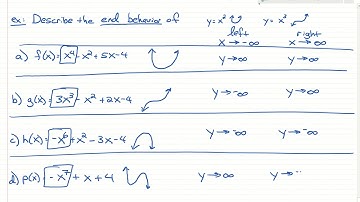 ex: Describe the end behavior of y=x² y=x³
left right
x→-∞ x→∞
a) f(x)=x⁴-x²+5x-4 y→∞ y→∞
b) g(x)=3x³-x²+2x-4 y→-∞ y→∞
c) h(x)=-x⁶+x²-3x-4 y→-∞ y→-∞
d) p(x)=-x⁷+x+4 y→∞ y→